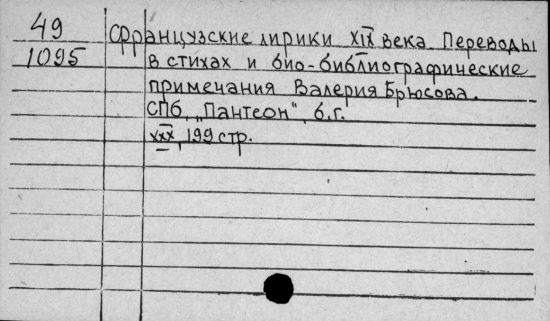 49
1095
Французские лирики XIX века. Переводы
в стихах и био-библиографические
примечания Валерия Брюсова.
СПб, „Пантеон", б.г.
XXX, 199 стр.